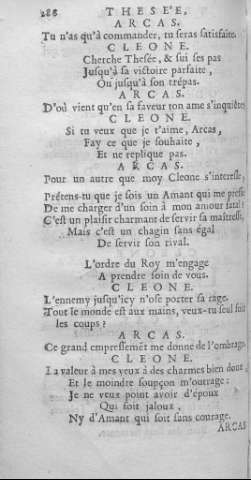 288 THESE'E,
ARCAS.
Tu n'as qu'à commander, tu seras satisfaite.
CLEONE.
Cherche Thesée, & sui ses pas
Jusqu'à sa victoire parfaite,
Ou jusqu'à son trépas.
ARCAS.
D'où vient qu'en sa faveur ton ame s'inquiéte
CLEONE.
Si tu veux que je t'aime, Arcas,
Fay ce que je souhaite,
Et ne replique pas.
ARCAS.
Pour un autre que moy Cleone s'interesse,
Prétens-tu que je sois un Amant qui me presse
De me charger d'un soin à mon amour fatal?
C'est un plaisir charmant de servir sa maîtresse,
Mais c'est un chagin sans égal
De servir son rival.
L'ordre du Roy m'engage
A prendre soin de vous.
CLEONE.
L'ennemy jusqu'icy n'ose porter sa rage.
Tout le monde est aux mains, veux-tu seul fuir
les coups?
ARCAS.
Ce grand empressemẽt me donne de l'ombrage.
CLEONE.
La valeur à mes yeux à des charmes bien doux,
Et le moindre soupçon m'outrage:
Je ne veux point avoir d'époux
Qui soit jaloux,
Ny d'Amant qui soit sans courage.
ARCAS